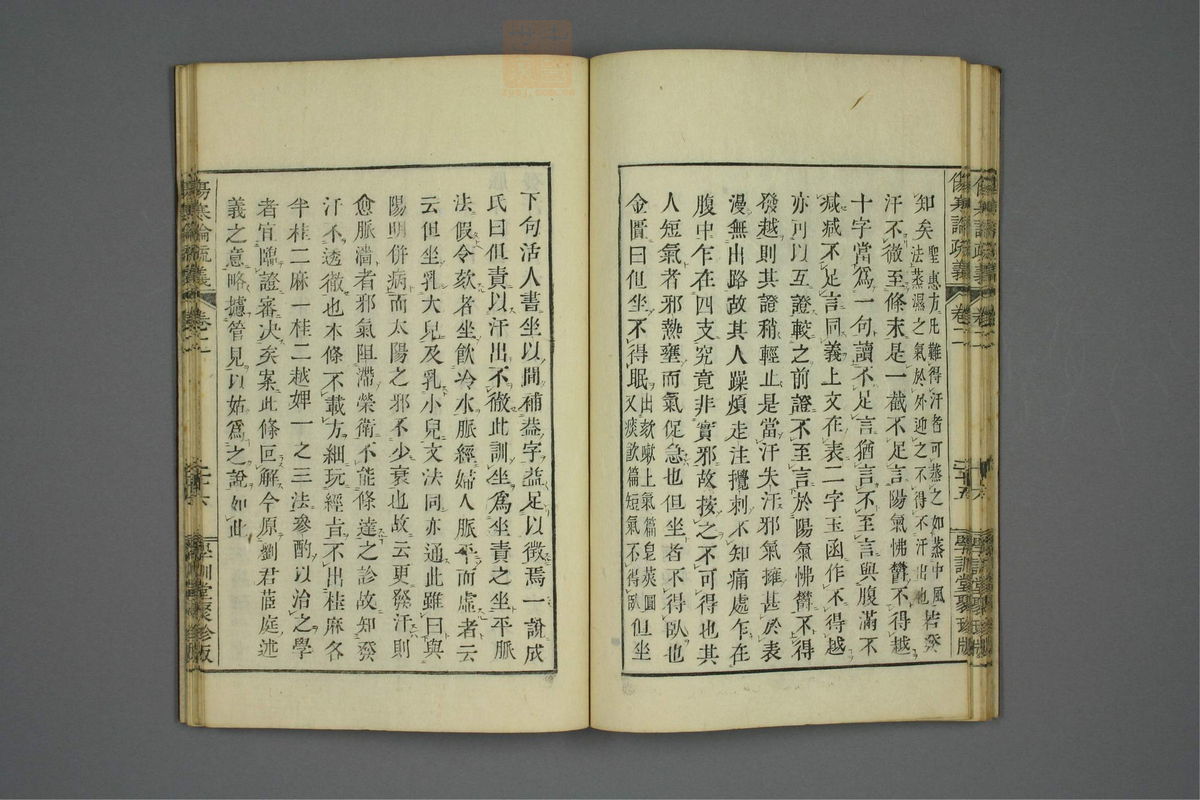 傷寒論疏義 卷二 二十五 學訓堂聚珍版
知矣聖惠方凡難得汗者可蒸之如蒸中風法蒸濕之氣於外迎之不得不汗出也若發
汗不徹至條末是一截不足言陽氣怫鬱不得越
十字當爲一句讀不足言猶言不至言與腹滿不
減減不足言同義上文在表二字玉函作不得越
亦可以互證較之前證不至言於陽氣怫鬱不得
發越則其證稍輕止是當汗失汗邪氣擁甚於表
漫無出路故其人躁煩走注攪刺不知痛處乍在
腹中乍在四支究竟非實邪故按之不可得也其
人短氣者邪熱壅而氣促急也但坐者不得臥也
金匱曰但坐不得眠出欬嗽上氣篇皂莢圓又痰飮篇短氣不得臥但坐
下句活人書坐以間補益字益足以徵焉一說成
氏曰但責以汗出不徹此訓坐爲坐責之坐平脈
法假令欬者坐飮冷水脈經婦人脈平而虛者云
云但坐乳大兒及乳小兒文法同亦通此雖曰與
陽明併病而太陽之邪不少衰也故云更發汗則
愈脈濇者邪氣阻滯榮衛不能條達之診故知發
汗不透徹也本條不載方細玩經旨不出桂麻各
半桂二麻一桂二越婢一之三法參酌以治之學
者宜臨證審決矣案此條叵解今原劉君茝庭述
義之意略攄管見以姑爲之說如此
傷寒論疏義 卷二 二十六 學訓堂聚珍版